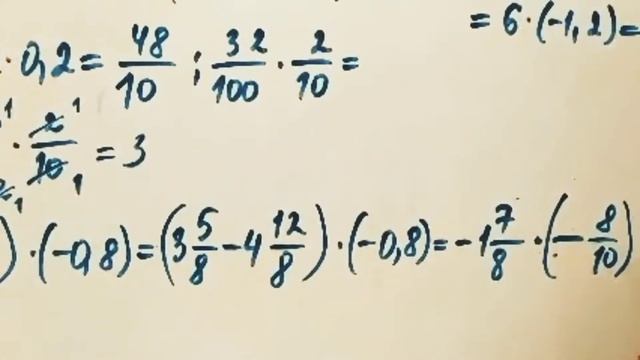 = 6 · (-1,2) =
· 0,2 = 48/10 : 32/100 · 2/10 =
· 2/10 = 3
) · (-0,8) = (3 5/8 - 4 12/8) · (-0,8) = -1 7/8 · (- 8/10)